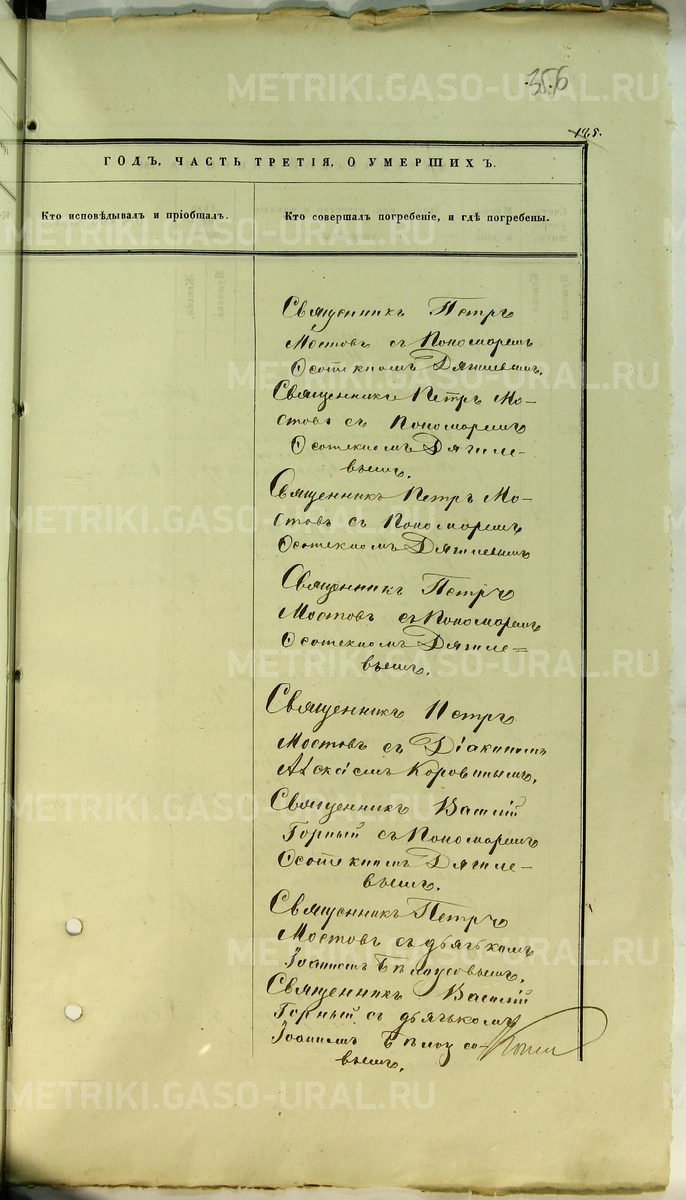 METRIKI.GASO-URAL.RU
356
128.
ГОДЪ, ЧАСТЬ ТРЕТІЯ, О УМЕРШИХЪ.
Кто исповѣдывалъ и пріобщалъ.
Кто совершалъ погребеніе, и гдѣ погребены.
Священникъ Петръ
Мостовъ съ Пономаремъ
Дягилевымъ.
Священникъ Петръ Мо-
стовъ съ Пономаремъ
Дягиле-
вымъ.
Священникъ Петръ Мо-
стовъ съ Пономаремъ
Дягилевымъ
Священникъ Петръ
Мостовъ съ Пономаремъ
Дягиле=
вымъ.
Священникъ Петръ
Мостовъ съ Діакономъ
Алексіемъ Коровинымъ.
Священникъ Василій
Горный съ Пономаремъ
Дягиле-
вымъ.
Священникъ Петръ
Мостовъ съ дьячькомъ
Іоанномъ Бѣлоусовымъ.
Священникъ Василій
Горный съ дьячькомъ
Іоанномъ
вымъ.